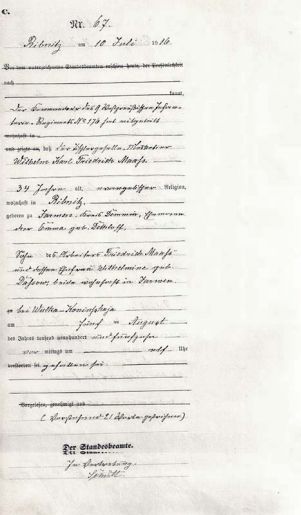 C.
Nr. 67.
Ribnitz am 10 Juli 1916
Vor dem unterzeichneten Standesbeamten erschien heute, der Persönlichkeit
nach
kannt,
Der Kommandeur des 9 Westpreußischen Infan-
terie-Regiments No 176 hat mitgeteilt
wohnhaft in
und zeigte an, daß der Musketier
Wilhelm Karl Friedrich Maaß,
34 Jahre alt, evangelischer Religion,
wohnhaft in Ribnitz,
geboren zu Jarmen, Kreis Demmin, Ehemann
der Emma geb.
Sohn des Arbeiters Friedrich Maaß
und dessen Ehefrau Wilhelmine geb.
beide wohnhaft in Jarmen
bei
am fünf ten August
des Jahres tausend neunhundert und fünfzehn
mittags um Uhr
verstorben sei gefallen sei
Vorgelesen, genehmigt und
(Vorstehend 21 Worte gestrichen)
Der Standesbeamte.
In Vertretung.